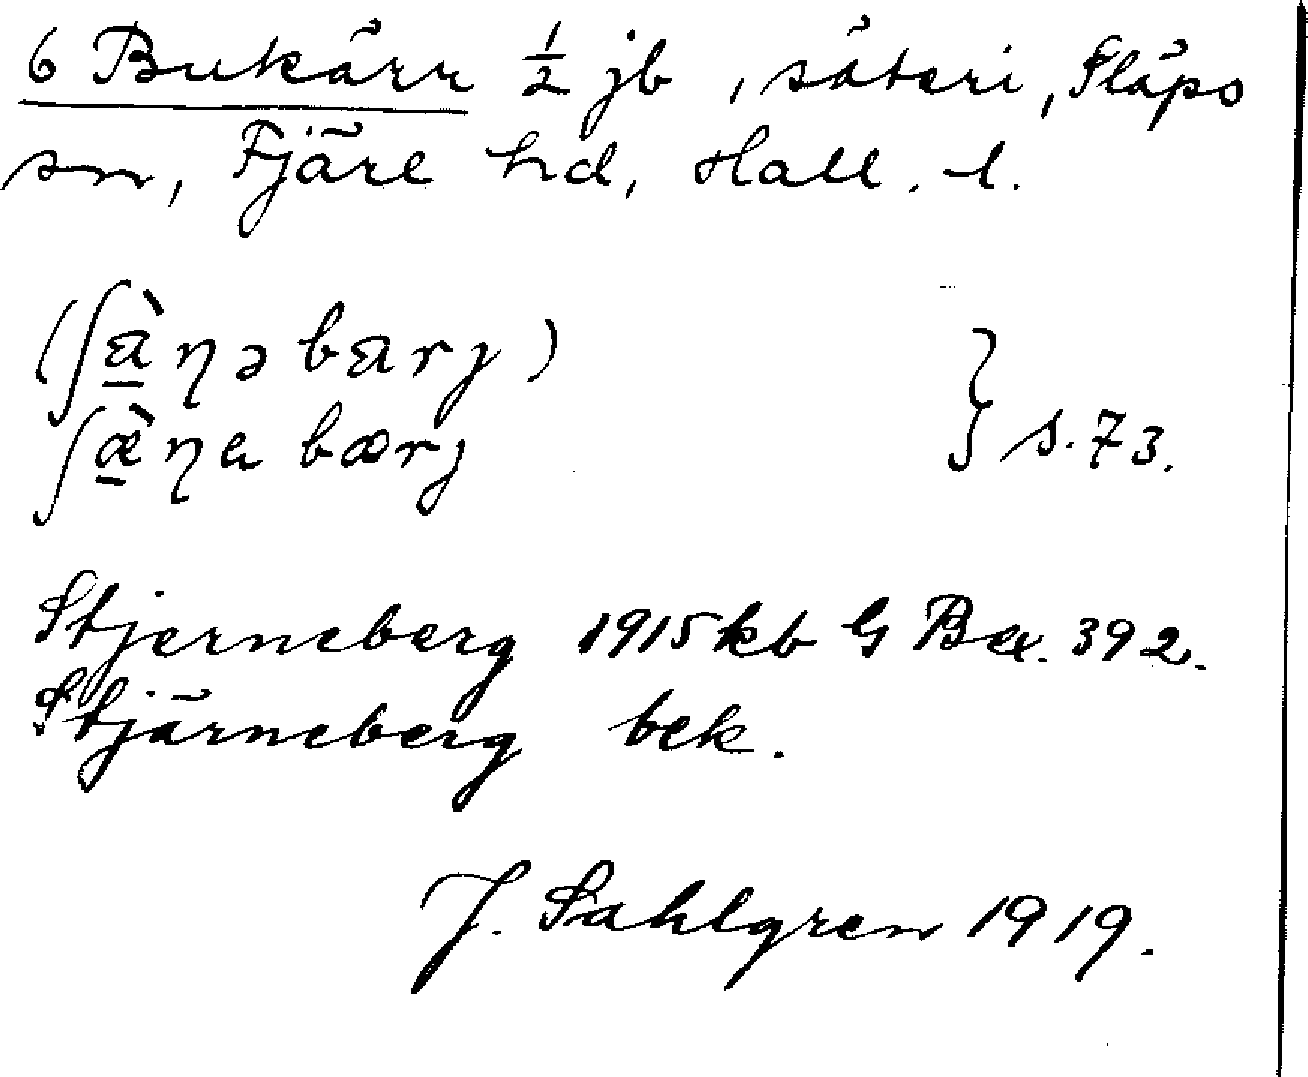 6 Bukärr 1/2 jb, säteri, Släps
sn, Fjäre hd, Hall. l.
(ʃæ̀ɳə bærj)
ʃæ̀ɳa bærj } s. 73.
Stjerneberg 1915 kb G Bex. 392.
Stjärneberg bek.
J. Sahlgren 1919.